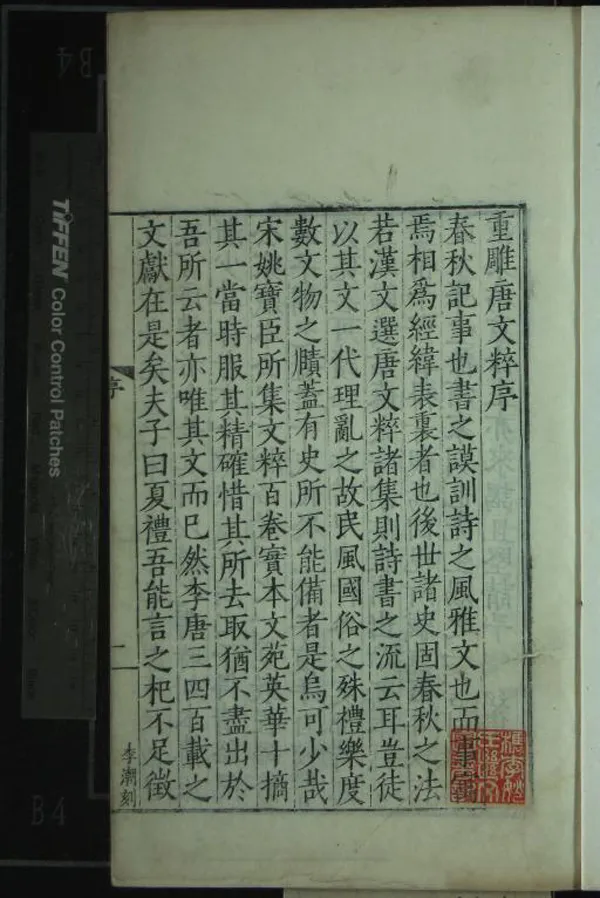 重雕唐文粹序
春秋記事也書之謨訓詩之風雅文也而
焉相爲經緯表裏者也後世諸史固春秋之法
若漢文選唐文粹諸集則詩書之流云耳豈徒
以其文一代理亂之故民風國俗之殊禮樂度
數文物之賾蓋有史所不能備者是烏可少哉
宋姚寶臣所集文粹百卷實本文苑英華十摘
其一當時服其精確惜其所去取猶不盡出於
吾所云者亦唯其文而已然李唐三四百載之
文獻在是矣夫子曰夏禮吾能言之杞不足徵
序
二
李潮刻
TIFFEN Color Control Patches
B4
B4